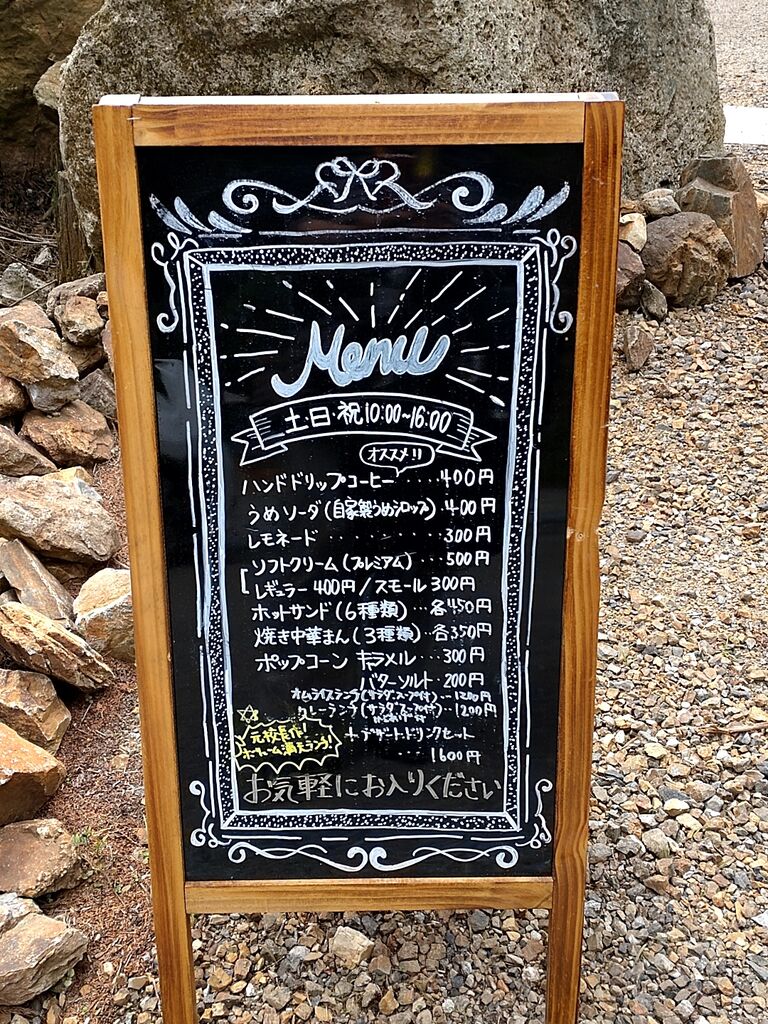 Menu
土・日・祝10:00~16:00
オススメ!!
ハンドドリップコーヒー ····400円
うめソーダ(自家製うめシロップ) ·400円
レモネード ········ 300円
ソフトクリーム(プレミアム) ··500円
レギュラー 400円/スモール300円
ホットサンド(6種類)··各450円
焼き中華まん(3種類)··各350円
ポップコーン キャラメル ··300円
バターソルト ··200円
オムライスランチ(サラダ、スープ付)··1200円
カレーランチ(サラダ、スープ付)··1200円
+デザートドリンクセット
··1600円
元校長作!
お気軽にお入りください